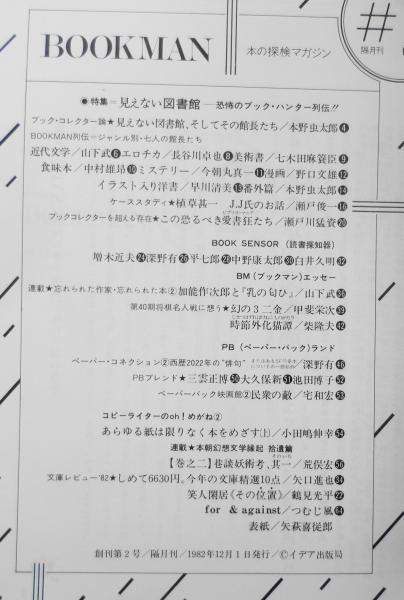 BOOKMAN
本の探検マガジン
隔月刊
◉特集=見えない図書館──恐怖のブック・ハンター列伝!!
ブック・コレクター論★見えない図書館、そしてその館長たち/本野虫太郎④
BOOKMAN列伝=ジャンル別・七人の館長たち
近代文学/山下武⑥エロチカ/長谷川卓也⑧美術書/七木田麻簑臣⑨
食味本/中村雄昂⑩ミステリー/今朝丸真一⑪漫画/野口文雄⑫
イラスト入り洋書/早川清美⑬番外篇/本野虫太郎⑭
ケーススタディ★植草甚一 J.J氏のお話/瀬戸俊一⑯
ブックコレクターを超える存在★この恐るべき愛書狂たち/瀬戸川猛資⑳
BOOK SENSOR (読書探知器)
増木近夫㉔深野有㉖平七郎㉘中野康太郎㉚臼井久明㉜
BM(ブックマン)エッセー
連載★忘れられた作家・忘れられた本②加能作次郎と『乳の匂ひ』/山下武㊱
第40期将棋名人戦に想う★幻の3二金/甲斐栄次㊴
時節外化猫譚/柴隆夫㊷
PB(ペーパー・バック)ランド
ペーパー・コネクション②西歴2022年の“俳句”/深野有㊻
PBブレンド★三雲正博㊿大久保新51池田博子52
ペーパーバック映画館②民衆の敵/宅和宏53
コピーライターのoh!めがね②
あらゆる紙は限りなく本をめざす(上)/小田嶋伸幸54
連載★本朝幻想文学縁起 拾遺篇
【巻之二】巷談妖術考、其一/荒俣宏56
文庫レビュー'82★しめて6630円。今年の文庫精選10点/矢口進也34
笑人閑居《その位置》/鶴見光平22
for & against/つむじ風64
表紙/矢萩喜従郎
創刊第2号/隔月刊/1982年12月1日発行/©イデア出版局